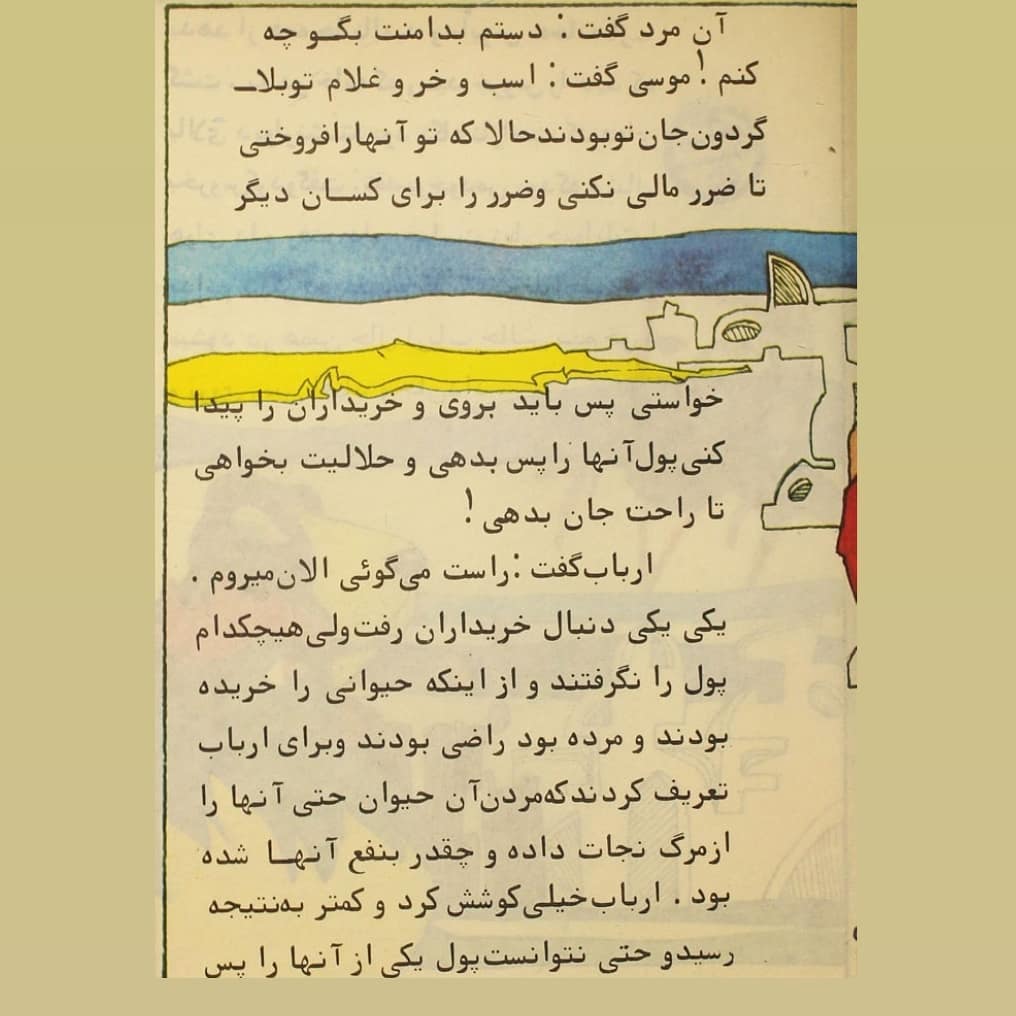 آن مرد گفت : دستم بدامنت بگـو چه
کنم ! موسی گفت : اسب و خر و غلام توبلاـ
گردون جان تو بودند حالا که تو آنها را فروختی
تا ضرر مالی نکنی وضرر را برای کسـان دیگر
خواستی پس باید بروی و خریداران را پیدا
کنی پول آنها را پس بدهی و حلالیت بخواهی
تا راحت جان بدهی !
ارباب گفت : راست می‌گوئی الان میروم .
یکی یکی دنبال خریداران رفت ولی هیچکدام
پول را نگرفتند و از اینکه حیوانی را خریده
بودند و مرده بود راضی بودند وبرای ارباب
تعریف کردند که مردن آن حیوان حتی آنها را
از مرگ نجات داده و چقدر بنفع آنهـا شده
بود . ارباب خیلی کوشش کرد و کمتر به نتیجه
رسید و حتی نتوانست پول یکی از آنها را پس